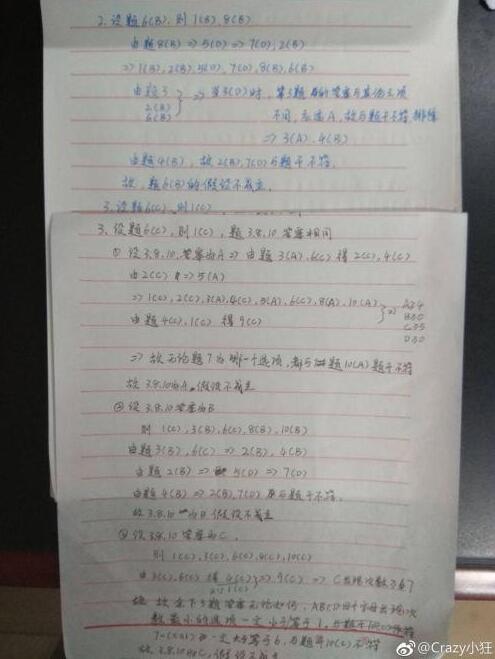 2. 设题6(B), 则1(B), 8(B)
由题8(B) => 5(D) => 7(D), 2(B)
=> 1(B), 2(B), 5(D), 7(D), 8(B), 6(B)
由题3
2(B)
6(B)
=> 当3(D)时, 第3题的答案与其他三项
不同, 应选A, 故与题干不符, 排除
=> 3(A), 4(B)
由题4(B), 故2(B), 7(D)与题干不符.
故, 题6(B)的假设不成立.
3. 设题6(C), 则1(C)
3. 设题6(C), 则1(C), 题3.8.10答案相同
① 设3.8.10.答案为A => 由题3(A), 6(C) 得 2(C), 4(C)
由2(C) => 5(A)
=> 1(C), 2(C), 3(A), 4(C), 5(A), 6(C), 8(A), 10(A)
由题4(C), 1(C) 得 9(C)
=> A34
B30
C35
D30
=> 故无论题7为哪一个选项, 都与题10(A)题干不符
故3.8.10为A.假设不成立
② 设3.8.10答案为B
则 1(C), 3(B), 6(C), 8(B), 10(B)
由题3(B), 6(C) => 2(B), 4(B)
由题2(B) => 5(D) => 7(D)
由题4(B) => 2(B), 7(D)与题干不符.
故3.8.10为B 假设不成立
③ 设3.8.10答案为C.
则 1(C), 3(C), 6(C), 8(C), 10(C)
由3(C), 6(C) 得 4(C) => 9(C) => C出现次数
故余下3题答案无论如何, ABCD四个字母出现次
数最小的选项一定小于等于1, 与题干10(C)不符
一定大于等于6, 与题干10(C)不符
故3.8.10为C, 假设不成立
@Crazy小狂